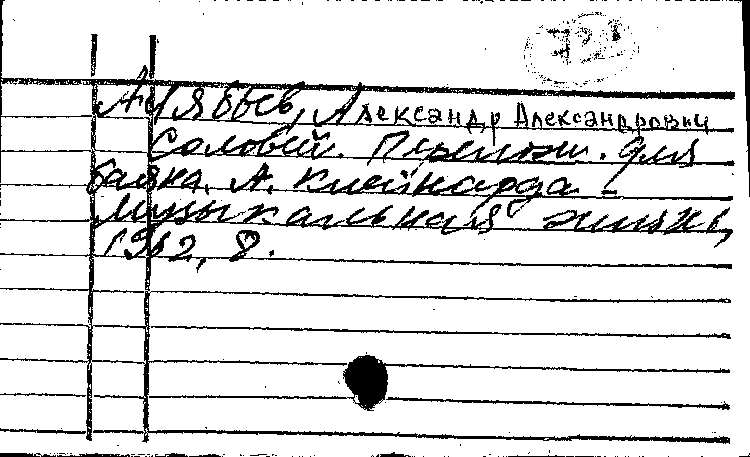 Алябьев, Александр Александрович
Соловей. Перелож. для
баяна. А. Клейнарда -
Музыкальная жизнь,
1962, 8.